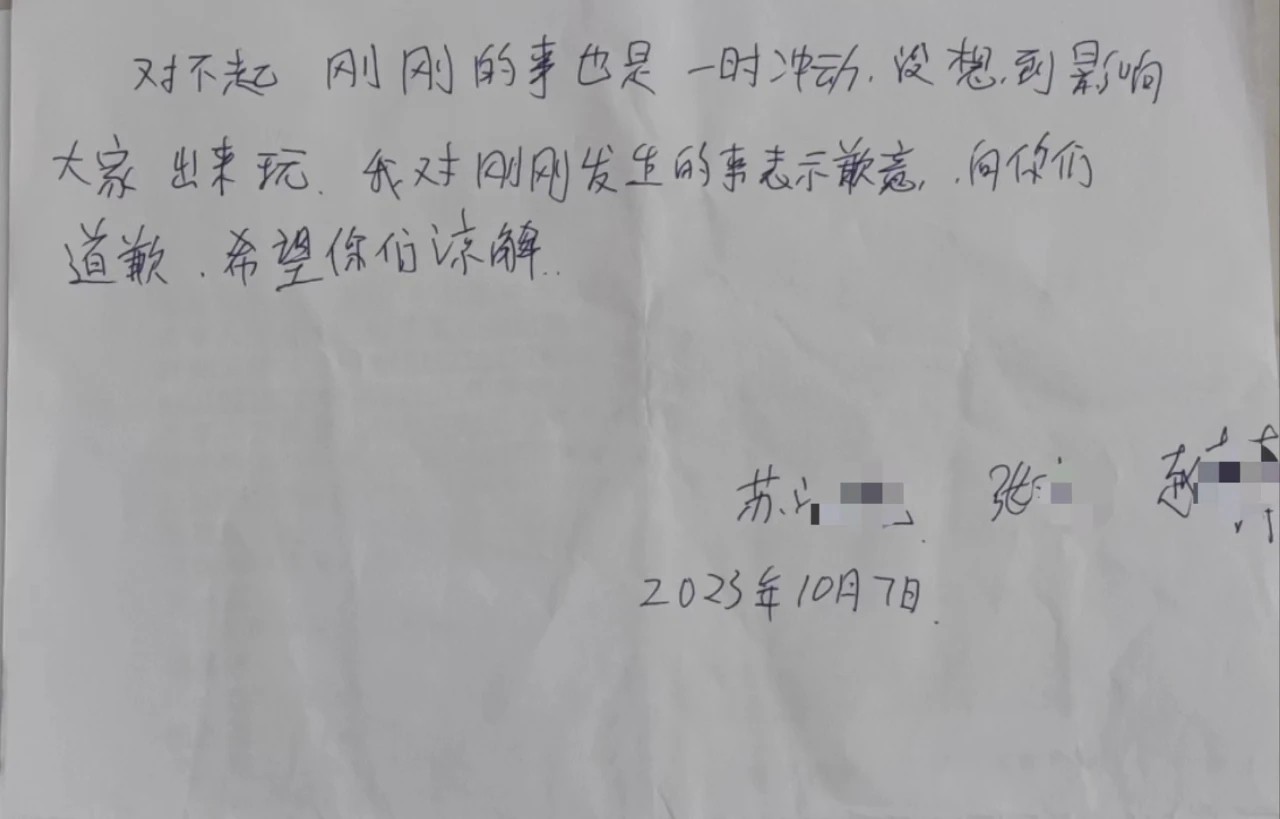 对不起 刚刚的事也是一时冲动.没想到影响
大家出来玩.我对刚刚发生的事表示歉意,.向你们
道歉.希望你们谅解..
苏 张 赵
2023年10月7日.